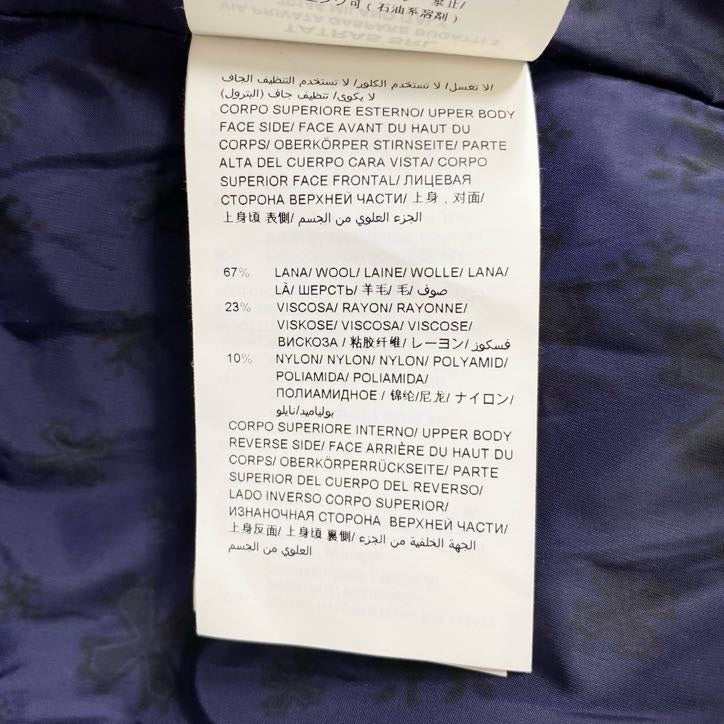 ング可 ( 石油系溶剤 )
VIA PRIVATA GASPARE BUGATTI 3
TATRAS SRL
لا تغسل/ لا تستخدم الكلور/ لا تستخدم التنظيف الجاف/
لا يكوى/ تنظيف جاف (البترول)
CORPO SUPERIORE ESTERNO/ UPPER BODY
FACE SIDE/ FACE AVANT DU HAUT DU
CORPS/ OBERKÖRPER STIRNSEITE/ PARTE
ALTA DEL CUERPO CARA VISTA/ CORPO
SUPERIOR FACE FRONTAL/ ЛИЦЕВАЯ
СТОРОНА ВЕРХНЕЙ ЧАСТИ/ 上身 , 对面/
上身頃 表側/ الجزء العلوي من الجسم
67% LANA/ WOOL/ LAINE/ WOLLE/ LANA/
LÀ/ ШЕРСТЬ/ 羊毛/ 毛/ صوف
23% VISCOSA/ RAYON/ RAYONNE/
VISKOSE/ VISCOSA/ VISCOSE/
ВИСКОЗА / 粘胶纤维/ レーヨン/ فسكوز
10% NYLON/ NYLON/ NYLON/ POLYAMID/
POLIAMIDA/ POLIAMIDA/
ПОЛИАМИДНОЕ / 锦纶/尼龙/ ナイロン/
بولياميد/نايلو
CORPO SUPERIORE INTERNO/ UPPER BODY
REVERSE SIDE/ FACE ARRIÈRE DU HAUT DU
CORPS/ OBERKÖRPERRÜCKSEITE/ PARTE
SUPERIOR DEL CUERPO DEL REVERSO/
LADO INVERSO CORPO SUPERIOR/
ИЗНАНОЧНАЯ СТОРОНА ВЕРХНЕЙ ЧАСТИ/
上身反面/ 上身頃 裏側/ الجهة الخلفية من الجزء
العلوي من الجسم